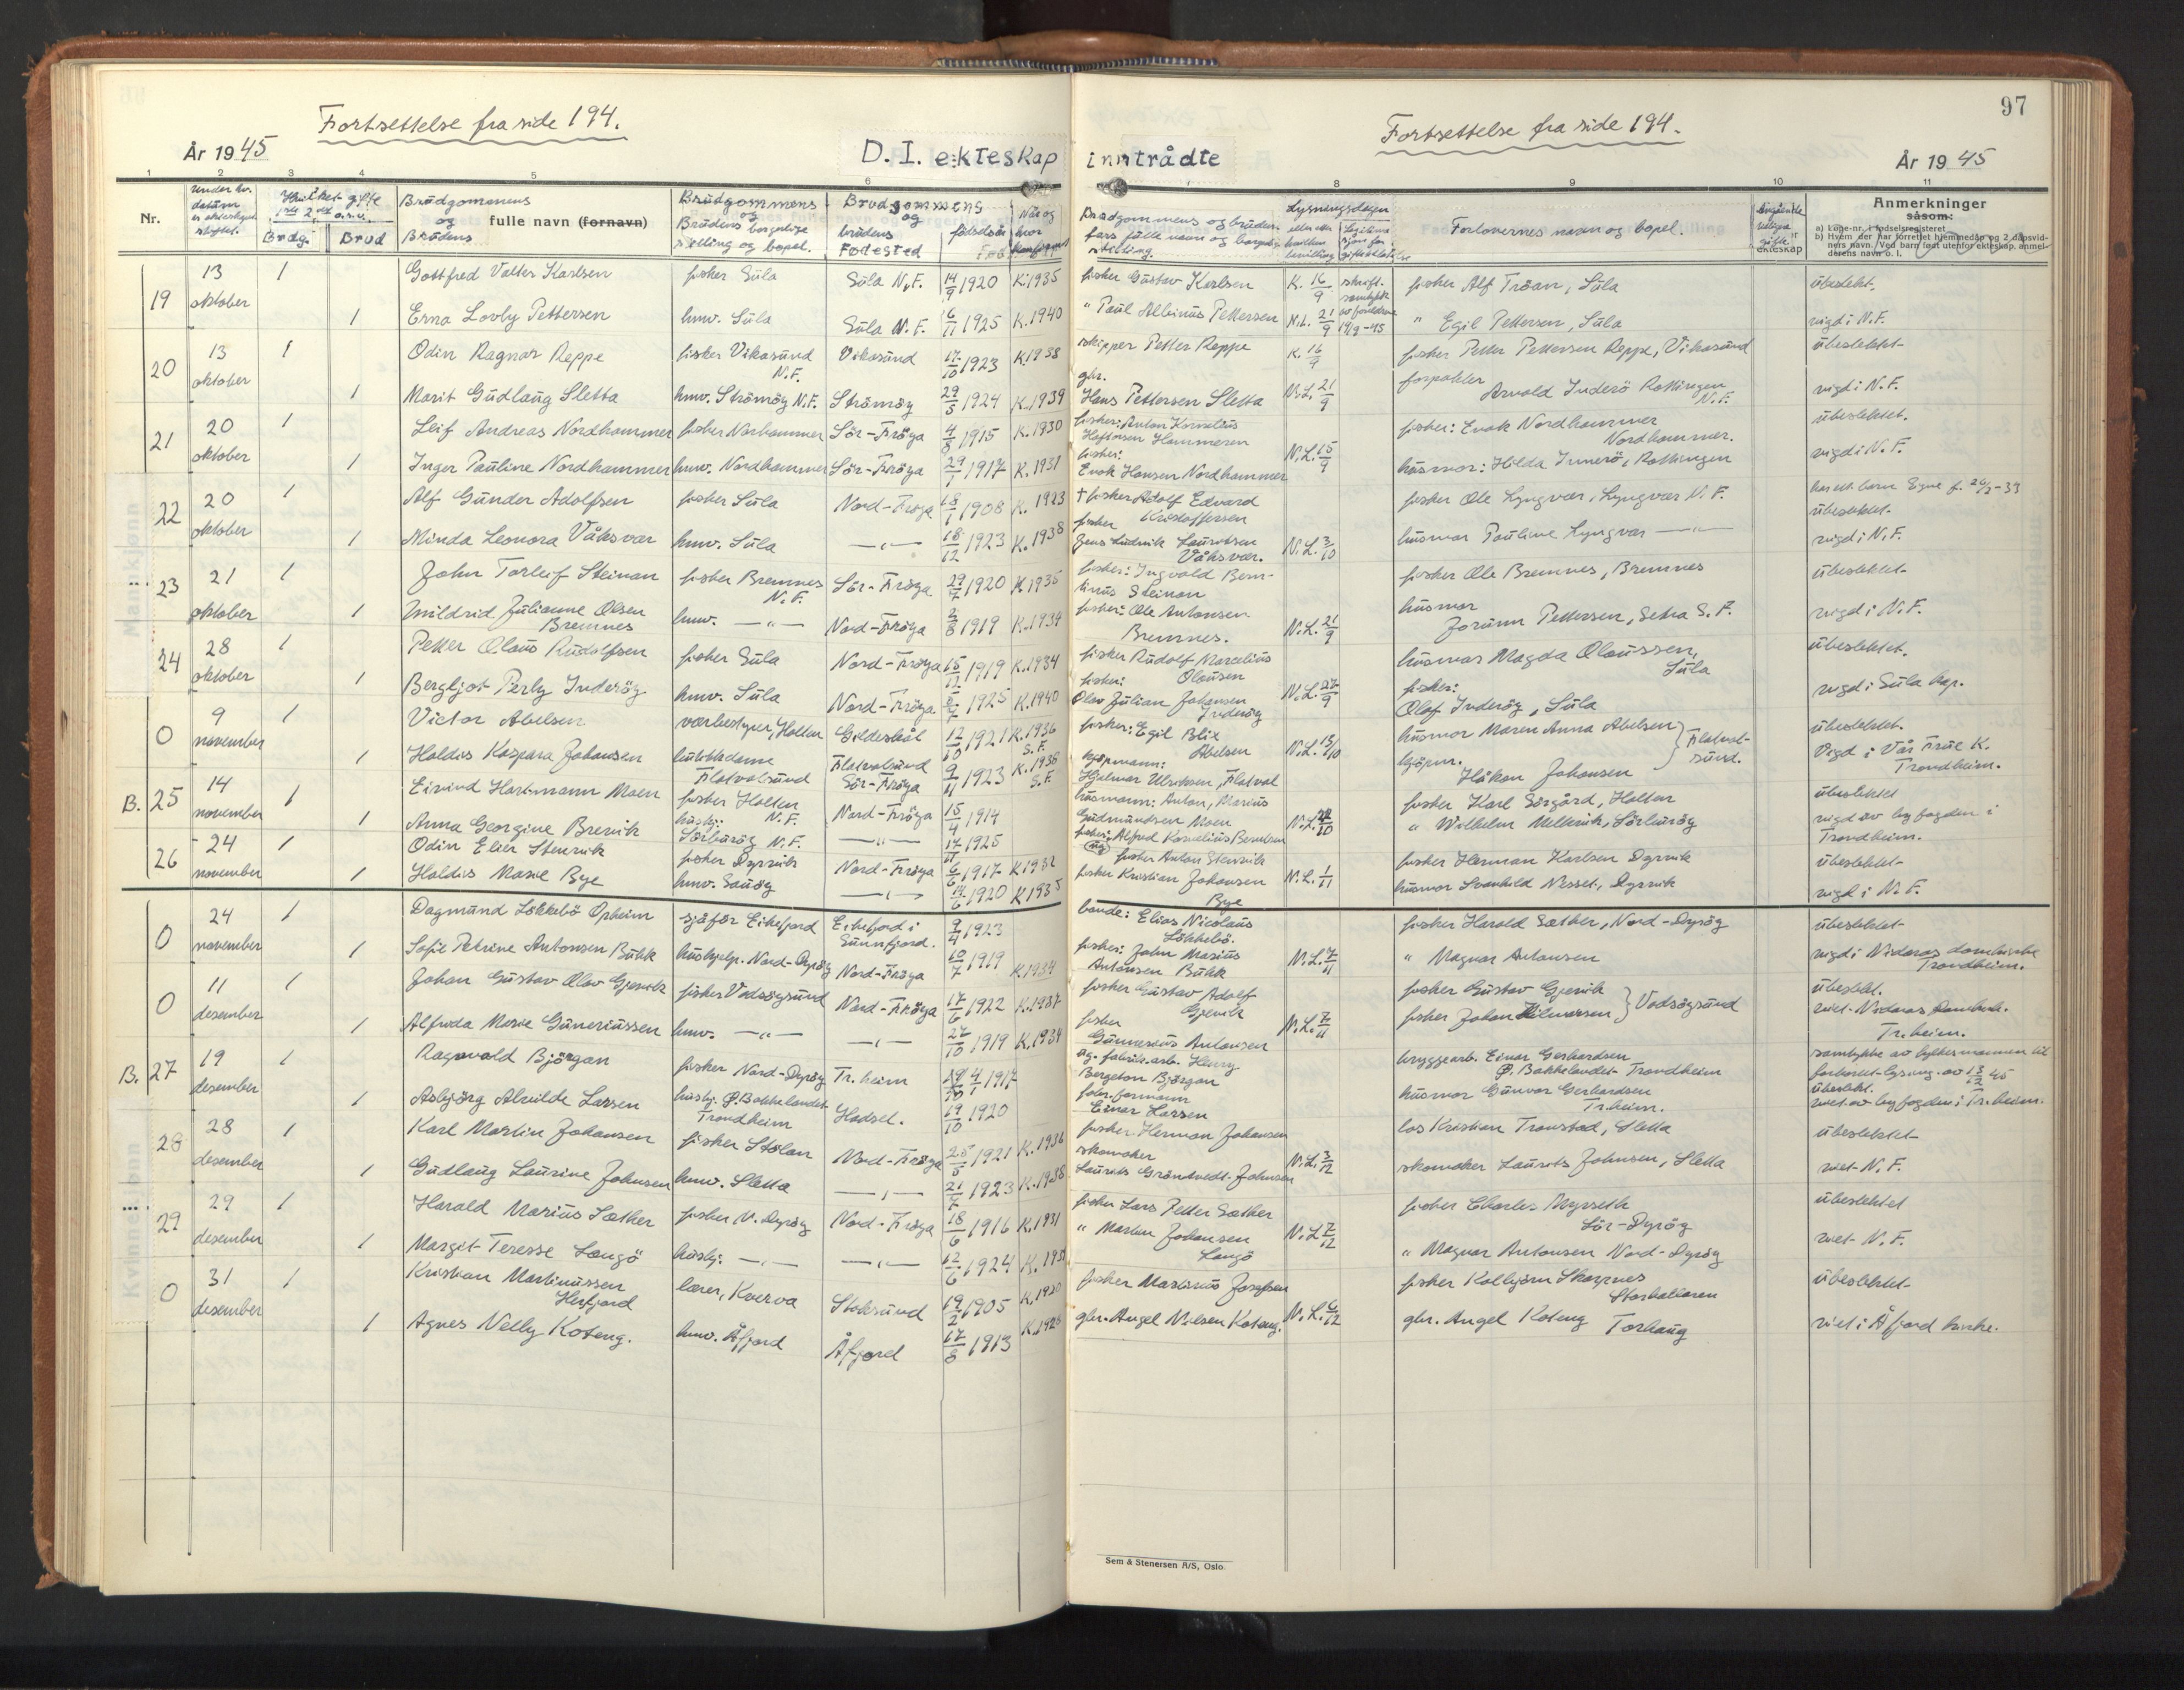 97
Fortsettelse fra side 194.
Fortsettelse fra side 194.
År 1945
D. I. ekteskap
inntrådte
År 1945
1 2 3 4 5 6 8 9 10 11
Nr.
Under hv. datum er ekteskapet stiftet.
Hvilket gifte 1ste 2net o.s.v.
Brdg. Brud
Brudgommens og Brudens fulle navn (fornavn)
Brudgommens og Brudens borgerlige stilling og bopel.
Brudgommens og brudens Fødested fødselsår
Når og hvor konfirmert
Brudgommens og brudens fars fulle navn og borgerlig stilling.
Lysningsdagen
Forlovernes navn og bopel.
ekteskap
Anmerkninger
såsom:
a) Løpe-nr. i fødselsregisteret
b) Hvem der har forrettet hjemmedåp og 2 dåpsvid-
ners navn. Ved barn født utenfor ekteskap, anmel-
derens navn o. l.
19 13 oktober 1 Gottfred Valter Karlsen fisker Sula Sula N.F. 14/9 1920 K.1935 fisker Gustav Karlsen K. 16/9 skriftl. samtykke av foreldrene 14/9-45 fisker Alf Tröan, Sula übeslekt.
1 Erna Lovly Pettersen hmv. Sula Sula N.F. 6/11 1925 K.1940 " Paul Albinus Pettersen N.L. 21/9 " Egil Pettersen, Sula vigd i N.F.
20 13 oktober 1 Odin Ragnar Reppe fisker Vikasund N.F. Vikasund 17/10 1923 K.1938 skipper Petter Reppe K. 16/9 fisker Petter Pettersen Reppe, Vikasund übeslektet
1 Marit Gudlaug Sletta hmv. Strömöy N.F. Strömöy 29/5 1924 K.1939 gbr. Hans Pettersen Sletta N.L. 21/9 forpakter Arvald Inderö Rottingen N.F. vigd i N.F.
21 20 oktober 1 Leif Andreas Nordhammer fisker Norhammer Sör-Fröya 4/8 1915 K.1930 fisker: Anton Kornelius Heftorsen Hammeren fisker: Enok Nordhammer Nordhammer. übeslektet.
1 Inger Pauline Nordhammer hmv. Nordhammer Sör-Fröya 29/1 1917 K.1931 fisker: Enok Hansen Nordhammer N.L. 15/9 husmor: Hilda Innerö, Rottingen vigd i N.F.
22 20 oktober 1 Alf Gunder Adolfsen fisker Sula Nord-Fröya 18/1 1908 K. 1923 † fisker Adolf Edvard Kristoffersen fisker Ole Lyngvær, Lyngvær N.F. har ett barn f. 26/3-39 übeslektet.
1 Minda Leonora Våksvær hmv. Sula —"— 18/12 1923 K. 1938 fisker Jens Ludvik Lauritsen Våksvær. N.L. 3/10 husmor Pauline Lyngvær —"— vigd i N.F.
23 21 oktober 1 John Torleif Steinan fisker Bremnes N.F. Sör-Fröya 29/7 1920 K 1935 fisker: Ingvald Berntinus Steinan fisker Ole Bremnes, Bremnes übeslektet
1 Mildrid Julianne Olsen Bremnes hmv. —"— Nord-Fröya 2/8 1919 K.1934 fisker: Ole Antonsen Bremnes. N.L. 21/9 husmor Jorunn Pettersen, Setra S.F. vigd i N.F.
24 28 oktober 1 Petter Olaus Rudolfsen fisker Sula Nord-Fröya 15/12 1919 K.1934 fisker Rudolf Marcelius Olausen husmor Magda Olaussen, Sula übeslektet.
1 Bergljot Perly Inderöy hmv. Sula Nord-Fröya 5/7 1925 K.1940 fisker: Olav Julian Johansen Inderöy N.L. 27/9 fisker: Olaf Inderöy, Sula vigd i Sula kap.
0 9 november 1 Victor Abelsen værbestyrer, Holten Gildeskål 12/10 1921 K.1936 S.F. fisker: Egil Blix Abelsen N.L. 13/10 husmor Maren Anna Abelsen übeslektet.
1 Haldis Kaspara Johansen butikkdame Flatvalsund Flatvalsund Sör-Fröya 9/11 1923 K.1938 S.F. kjöpmann: Hjalmar Ulriksen, Flatval kjöpm. Håkon Johansen } Flatvalsund. Vigd i Vår Frue K. Trondheim.
B. 25 14 november 1 Eivind Hartmann Moen fisker Holten N.F. Nord-Fröya 15/4 1914 husmann: Anton, Marius Gudmundsen Moen fisker Karl Sörgård, Holten übeslektet
1 Anna Georgine Brevik husbj: Sörburöy N.F. —"— 17/11 1925 fisker: Alfred Kornelius Berntsen " Wilhelm Melkvik, Sörburöy vigd av byfogden i Trondheim.
26 24 november 1 Odin Elier Stenvik fisker Dyrvik Nord-Fröya 6/6 1917 K 1932 fisker Anton Stenvik fisker Herman Karlsen Dyrvik übeslektet
1 Haldis Marie Bye hmv. Sauöy —"— 14/6 1920 K 1935 fisker Kristian Johansen Bye N.L. 1/11 husmor Svanhild Nesset, Dyrvik vigd i N.F.
0 24 november 1 Dagmund Lökkebö Opheim sjåför Eikefjord Eikefjord i Sunnfjord. 9/4 1923 bonde: Elias Nicolaus Lökkebö. fisker Harald Sæther, Nord-Dyröy übeslektet
1 Sofie Petrine Antonsen Bukk hushjelp. Nord-Dyröy Nord-Fröya 10/7 1919 K 1934 fisker: John Marius Antonsen Bukk N.L. 7/11 " Magnar Antonsen vigd i Nidaros domkirke Trondheim.
0 11 desember 1 Johan Gustav Olav Gjervik fisker Vadsöysund Nord-Fröya 17/6 1922 K.1937 fisker Gustav Adolf Gjervik fisker Gustav Gjervik übeslekt.
1 Alfrida Marie Guneriussen hmv. —"— —"— 27/10 1919 K.1934 fisker Gunnerius Antonsen N.L. 7/11 fisker Johan Hilmarsen } Vadsöysund viet Nidaros Domkirk. Tr.heim.
B. 27 19 desember 1 Ragnvald Björgan fisker Nord-Dyröy Tr. heim 4/7 1917 fabrik.arb. Henry Bergeton Björgan bryggearb. Einar Gerhardsen Ø. Bakkelandet Trondheim samtykke av fylkesmannen til forkortet lysning av 13/12 45 übeslekt.
1 Asbjörg Alvilde Larsen husbj. Ø. Bakkelandet Trondheim Hadsel. 19/10 1920 fabr.formann Einar Larsen husmor Gunvor Gerhardsen Tr.heim. viet av byfogden i Tr.heim.
28 28 desember 1 Karl Martin Johansen fisker Stölan Nord-Fröya 25/5 1921 K.1936 fisker Herman Johansen los Kristian Tronstad, Sletta übeslektet
1 Gudlaug Laurine Johnsen hmv. Sletta —"— 21/7 1923 K.1938 skomaker Laurits Gröntvedt Johnsen N.L. 3/12 skomaker Laurits Johnsen, Sletta viet N.F.
29 29 desember 1 Harald Marius Sæther fisker N. Dyröy Nord-Fröya 18/6 1916 K.1931 fisker Lars Petter Sæther fisker Charles Myrseth Sör-Dyröy übeslektet
1 Margit Teresse Langö husbj. —"— —"— 12/6 1924 " Martin Johansen Langö N.L. 7/12 " Magnar Antonsen Nord-Dyröy viet N.F.
0 31 desember 1 Kristian Martinussen Herfjord lærer, Kverva Stoksund 19/2 1905 K.1920 fisker Martinus Josefsen fisker Kolbjörn Skarpnes Storhallaren übeslektet
1 Agnes Nelly Koteng. hmv. Åfjord Åfjord 17/8 1913 K.1928 gbr. Angel Nilsen Koteng. N.L. 6/12 gbr. Angel Koteng Torhaug viet i Åfjord kirke.
Sem & Stenersen A/S, Oslo.